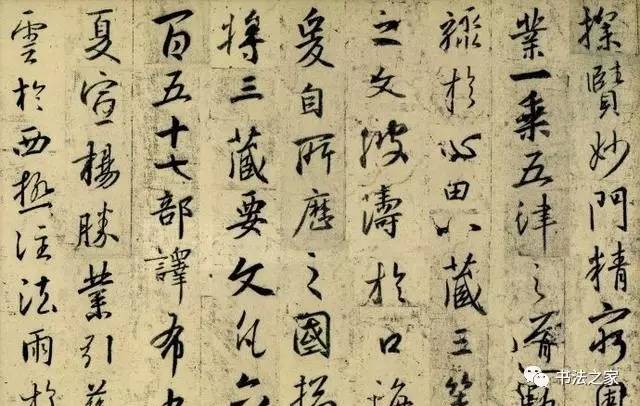 探賾妙門精窮奧
業一乘五律之道馳
驟於心田八藏三篋
之文波濤於口海
爰自所歷之國揔
將三藏要文凡六
百五十七部譯布
夏宣楊勝業引慈
雲於西極注法雨於
书法之家